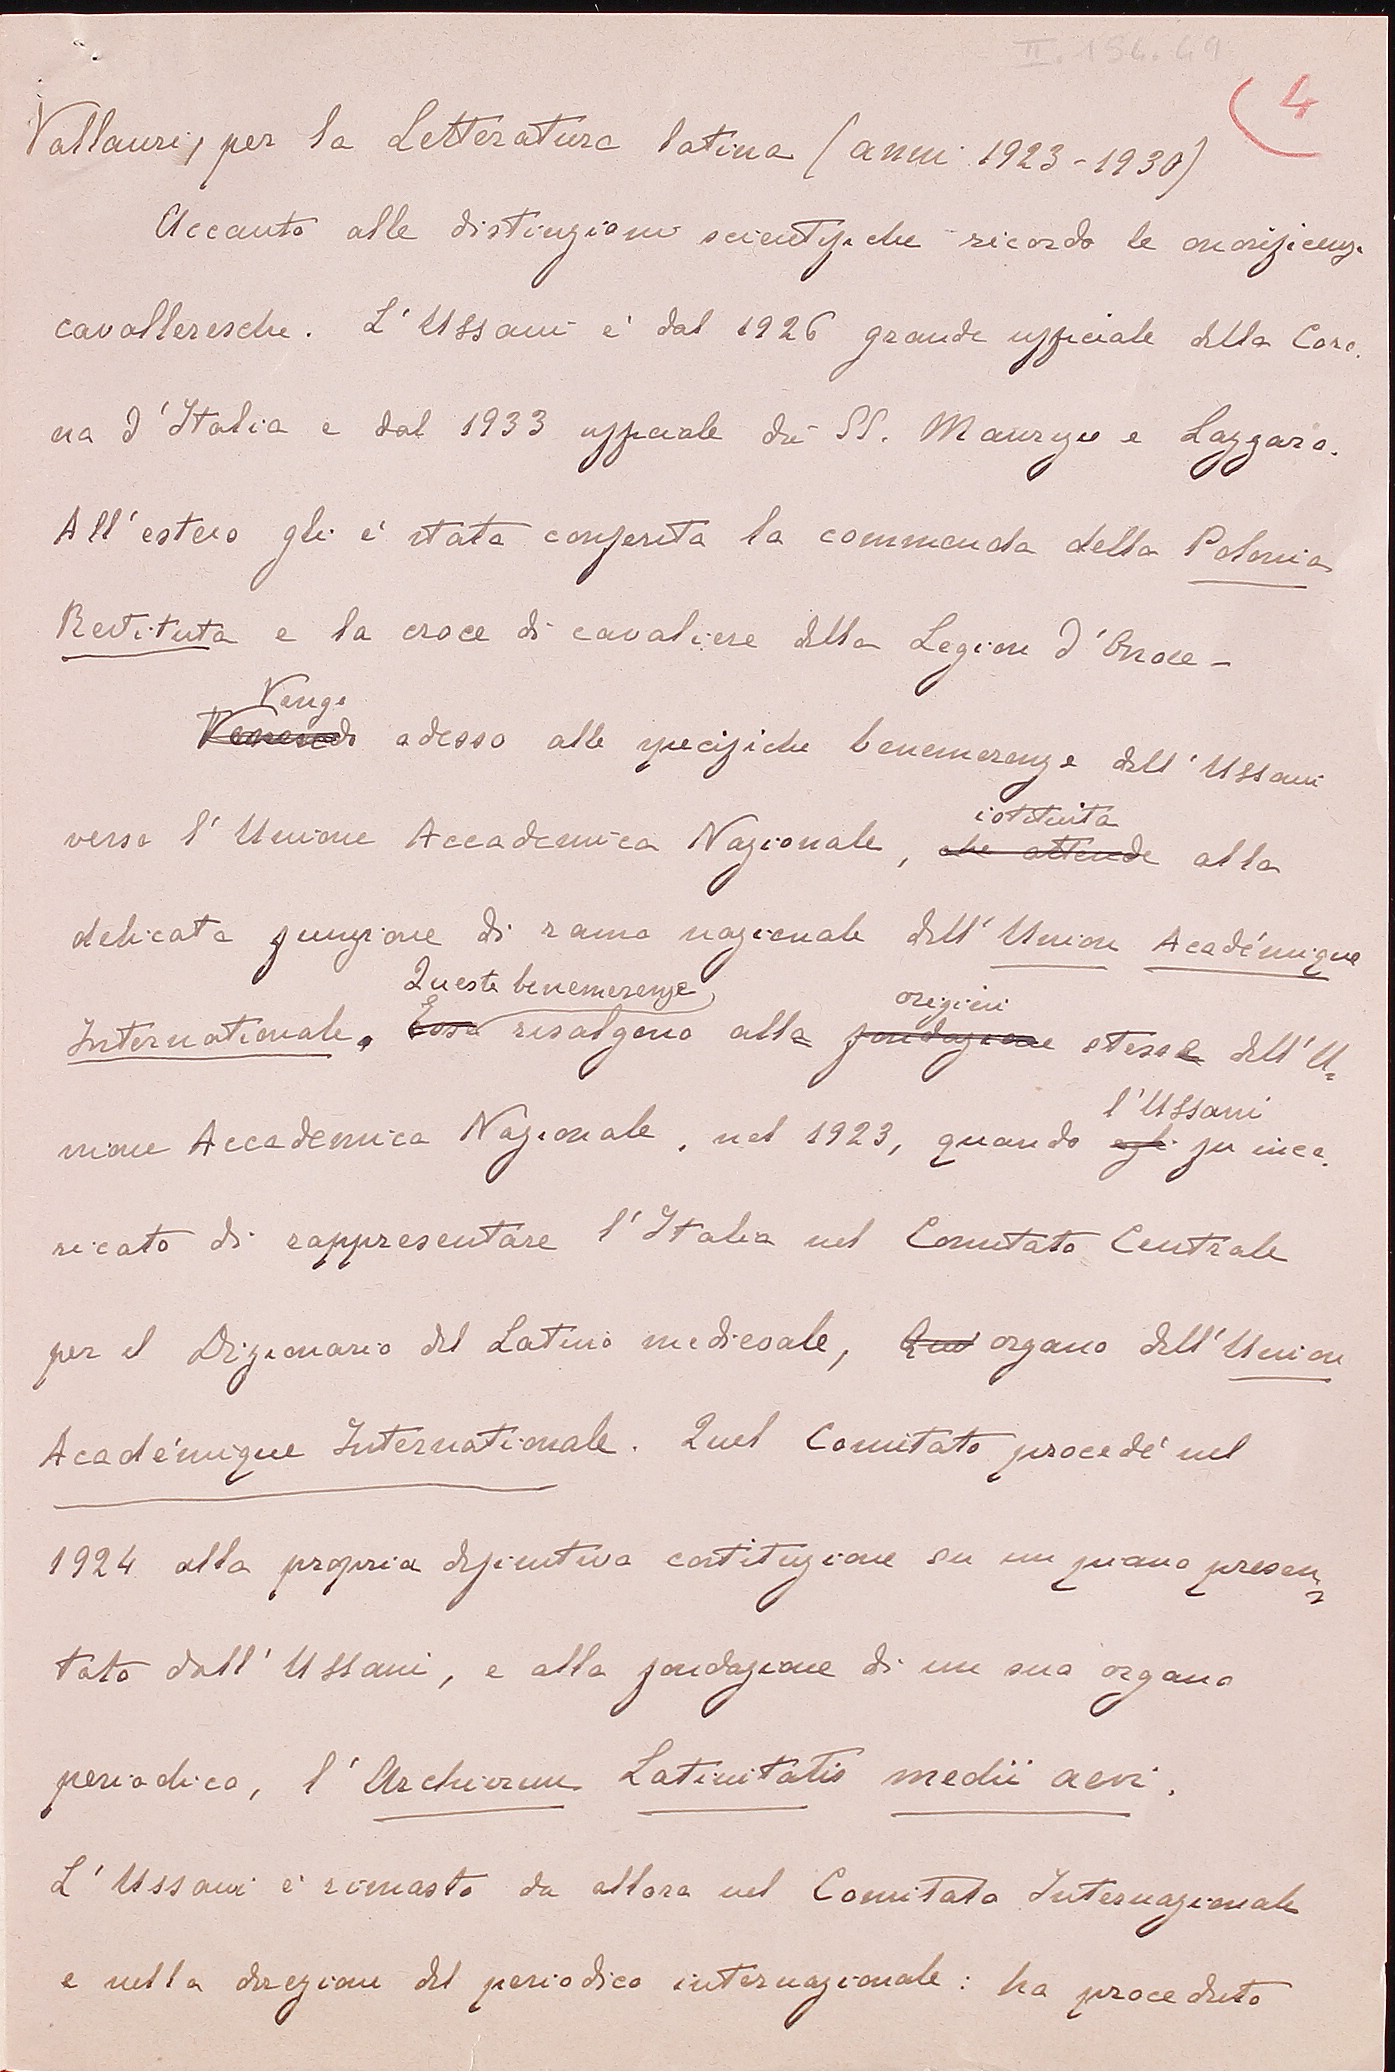 II. 154. 49
4
Vallauri, per la Letteratura latina (anni 1923-1930)
Accanto alle distinzioni scientifiche ricordo le onorificenze
cavalleresche. L'Ussani è dal 1926 grande ufficiale della Coro-
na d'Italia e dal 1933 ufficiale dei SS. Maurizio e Lazzaro.
All'estero gli è stata conferita la commenda della Polonia
Restituta e la croce di cavaliere della Legion d'Onore -
Vengo
Venendo adesso alle specifiche benemerenze dell'Ussani
istituita
verso l'Unione Accademica Nazionale, che attende alla
delicata funzione di ramo nazionale dell'Union Académique
Queste benemerenze origini
Internationale. Esse risalgono alle fondazione stesse dell'U=
l'Ussani
nione Accademica Nazionale, nel 1923, quando egli fu inca-
ricato di rappresentare l'Italia nel Comitato Centrale
per il Dizionario del Latino medievale, organo dell'Union
Académique Internationale. Quel Comitato procedé nel
1924 alla propria definitiva costituzione su un piano presen-
tato dall'Ussani, e alla fondazione di un suo organo
periodico, l'Archivum Latinitatis medii aevi.
L'Ussani è rimasto da allora nel Comitato Internazionale
e nella direzione del periodico internazionale: ha proceduto